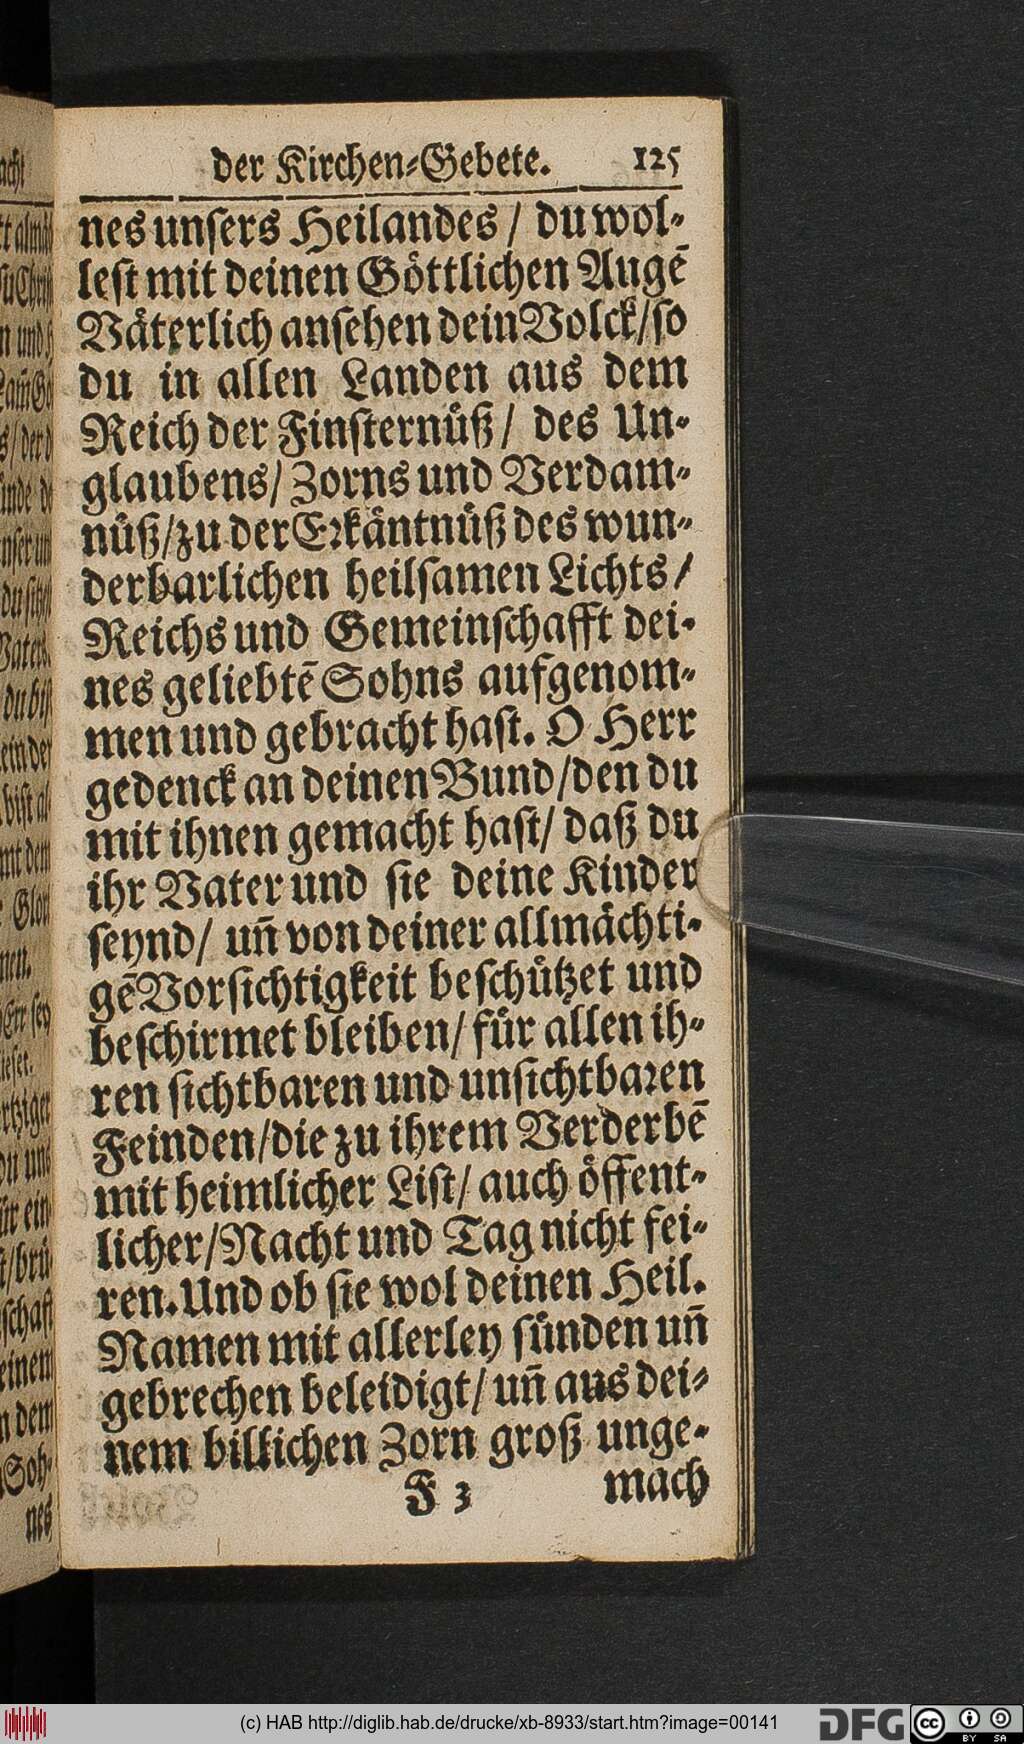 der Kirchen-Gebete. 125
nes unsers Heilandes / du wol-
lest mit deinen Göttlichen Augē
Väterlich ansehen dein Volck/so
du in allen Landen aus dem
Reich der Finsternüß / des Un-
glaubens/ Zorns und Verdam-
nüß/zu der Erkäntnüß des wun-
derbarlichen heilsamen Lichts /
Reichs und Gemeinschafft dei-
nes geliebtē Sohns aufgenom-
men und gebracht hast. O Herr
gedenck an deinen Bund/den du
mit ihnen gemacht hast/ daß du
ihr Vater und sie deine Kinder
seynd/ uñ von deiner allmächti-
gē Vorsichtigkeit beschützet und
beschirmet bleiben/ für allen ih-
ren sichtbaren und unsichtbaren
Feinden/die zu ihrem Verderbē
mit heimlicher List/ auch öffent-
licher/Nacht und Tag nicht fei-
ren. Und ob sie wol deinen Heil.
Namen mit allerley sünden uñ
gebrechen beleidigt/ uñ aus dei-
nem billichen Zorn groß unge-
F 3 mach
(c) HAB http://diglib.hab.de/drucke/xb-8933/start.htm?image=00141
DFG
cc BY SA